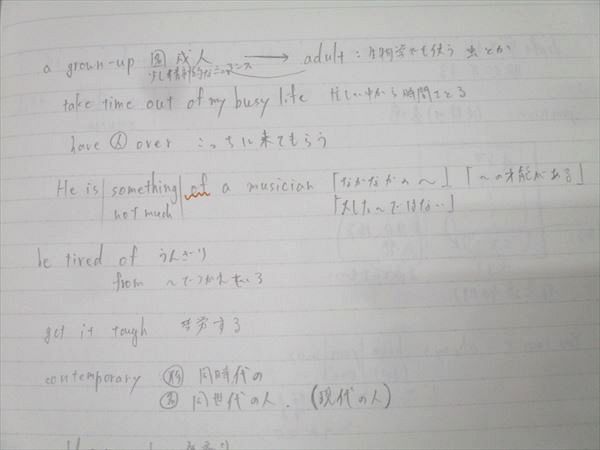 a grown-up 名 成人 → adult : 生物学でも使う 虫とか
少し情緒的なニュアンス
take time out of my busy life 忙しい中から時間をとる
have 人 over こっちに来てもらう
He is something of a musician 「なかなかの〜」「〜の才能がある」
not much 「大した〜ではない」
be tired of うんざり
from 〜でつかれている
get it tough 苦労する
contemporary 形 同時代の
名 同世代の人. (現代の人)